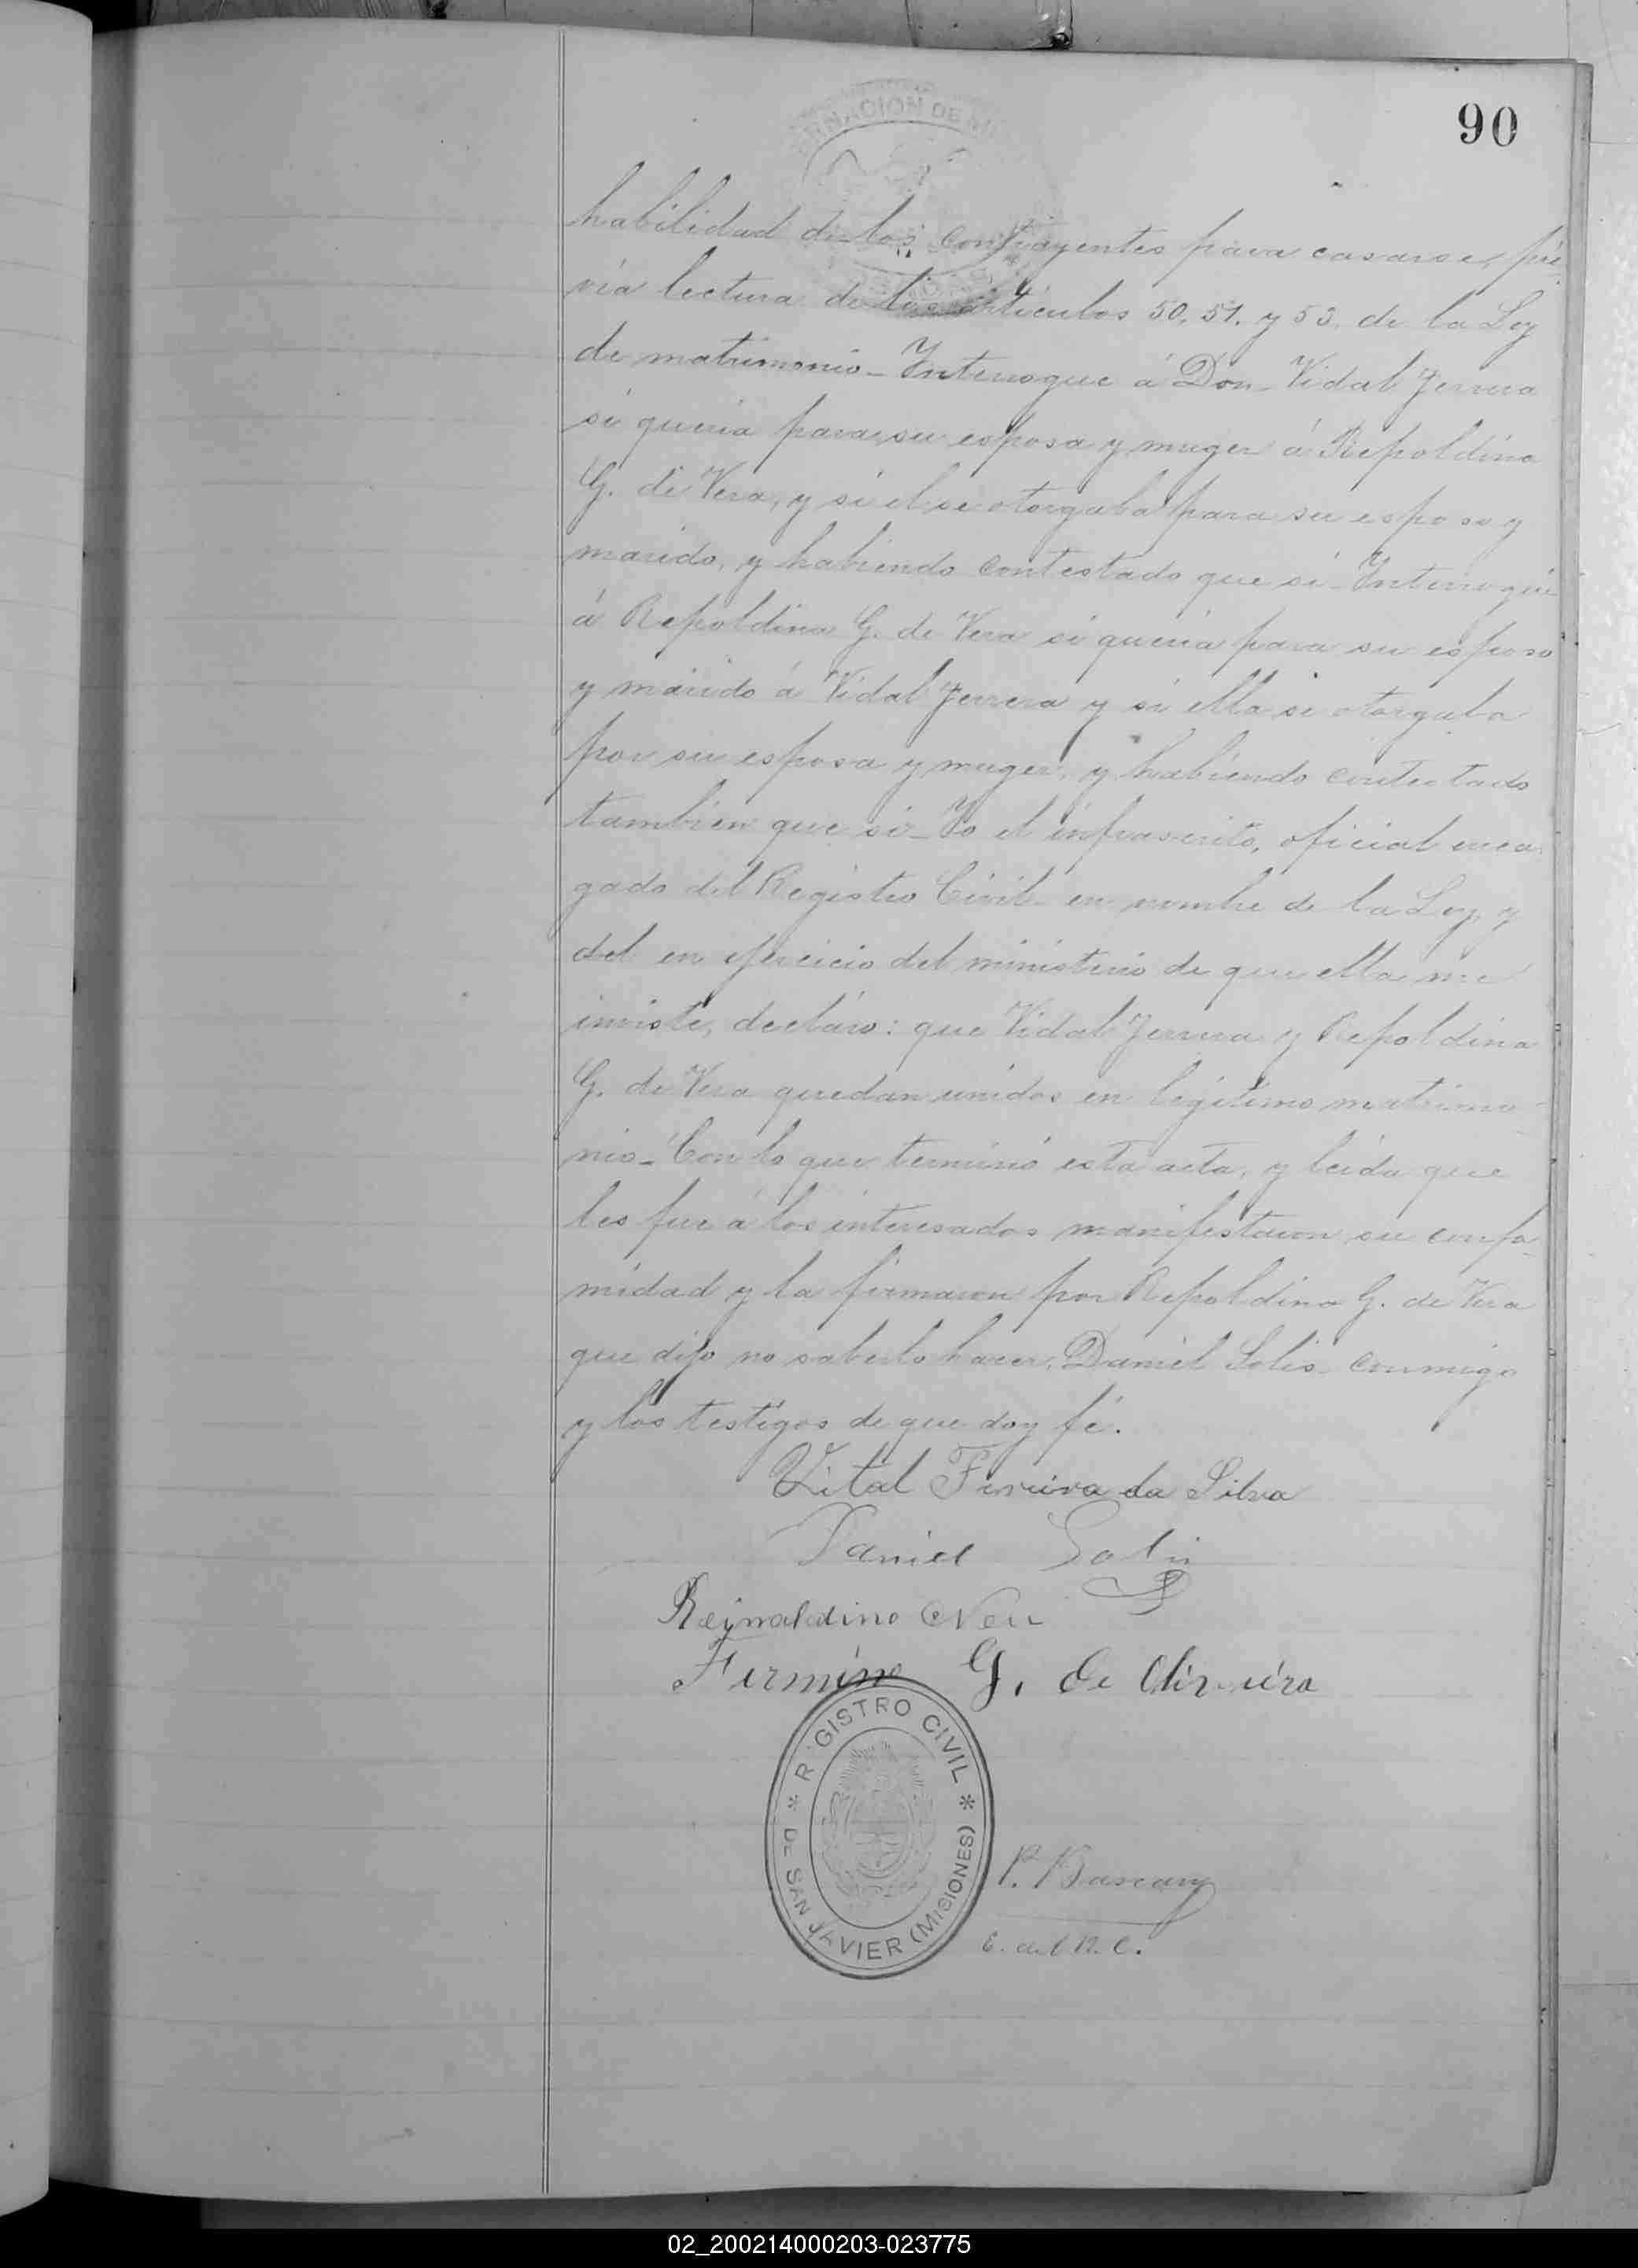 90
NACION DE MI
habilidad de los contrayentes para casarse, pré
via lectura de los artículos 50, 51. y 53. de la Ley
de matrimonio_ Interrogue á Don_ Vidal Ferrera
si queria para su esposa y muger á Repoldina
G. de Vera, y si el se otorgaba para su esposo y
marido, y habiendo contestado que si_ Interrogué
á Repoldina G. de Vera si queria para su esposo
y marido á Vidal Ferrera y si ella se otorgaba
por su esposa y muger, y habiendo contestado
tambien que si_ Yo el infrascrito, oficial encar
gado del Registro Civil en nombre de la Ley, y
del en ejercicio del ministerio de que ella me
inviste, decláro: que Vidal Ferrera y Repoldina
G. de Vera quedan unidos en legitimo matrimo
nio_ Con lo que terminó esta acta, y leida que
les fue á los interesados manifestaron su confor
midad y la firmaron por Repoldina G. de Vera
que dijo no saberlo hacer, Daniel Solis_ conmigo
y los testigos de que doy fé.
Vital Ferreira da Silva
Daniel Solis
Reinaldino Neri
Firmino G. de Oliveira
R GISTRO CIVIL
* DE SAN JAVIER (MISIONES) *
P. Bascary
E. del R. C.
02_200214000203-023775